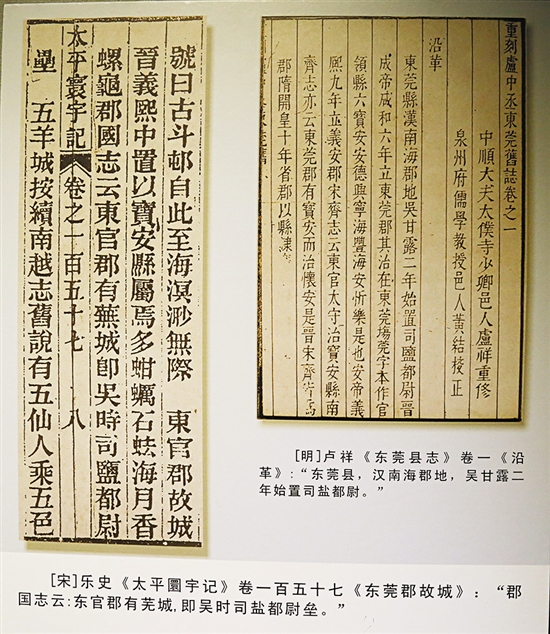 重刻盧中丞東莞舊誌卷之一
中順大夫太僕寺少卿邑人盧祥重修
泉州府儒學教授邑人黃結校正
沿革
東莞縣漢南海郡地吳甘露二年始置司鹽都尉晉
成帝咸和六年立東莞郡其治在東莞塲莞字本作官
領縣六寶安安德興寧海豐海安忻樂是也安帝義
熙九年立義安郡宋齊志云東官太守治寶安縣南
齊志亦云東莞郡有寶安而治懷安是晉宋齊皆為
郡隋開皇十年省郡以縣隸
[明]卢祥《东莞县志》卷一《沿
革》:“东莞县，汉南海郡地，吴甘露二
年始置司盐都尉。”
號曰古斗邨自此至海溟渺無際 東官郡故城
晉義熙中置以寶安縣屬焉多蚶蠣石蜐海月香
螺龜郡國志云東官郡有蕪城卽吳時司鹽都尉
太平寰宇記 卷之一百五十七 八
壘 五羊城按續南越志舊說有五仙人乘五色
[宋]乐史《太平圜宇记》卷一百五十七《东莞郡故城》：“郡
国志云:东官郡有芜城,即吴时司盐都尉垒。”